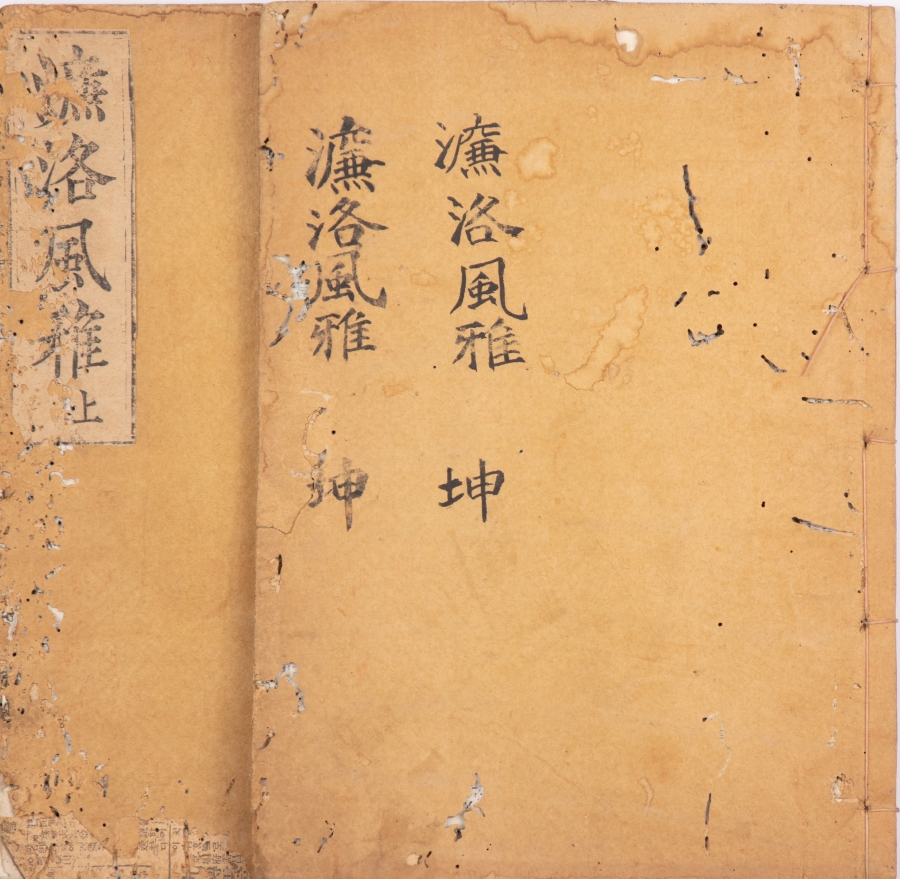 濂洛風雅 坤
濂洛風雅 坤
濂洛風雅 上